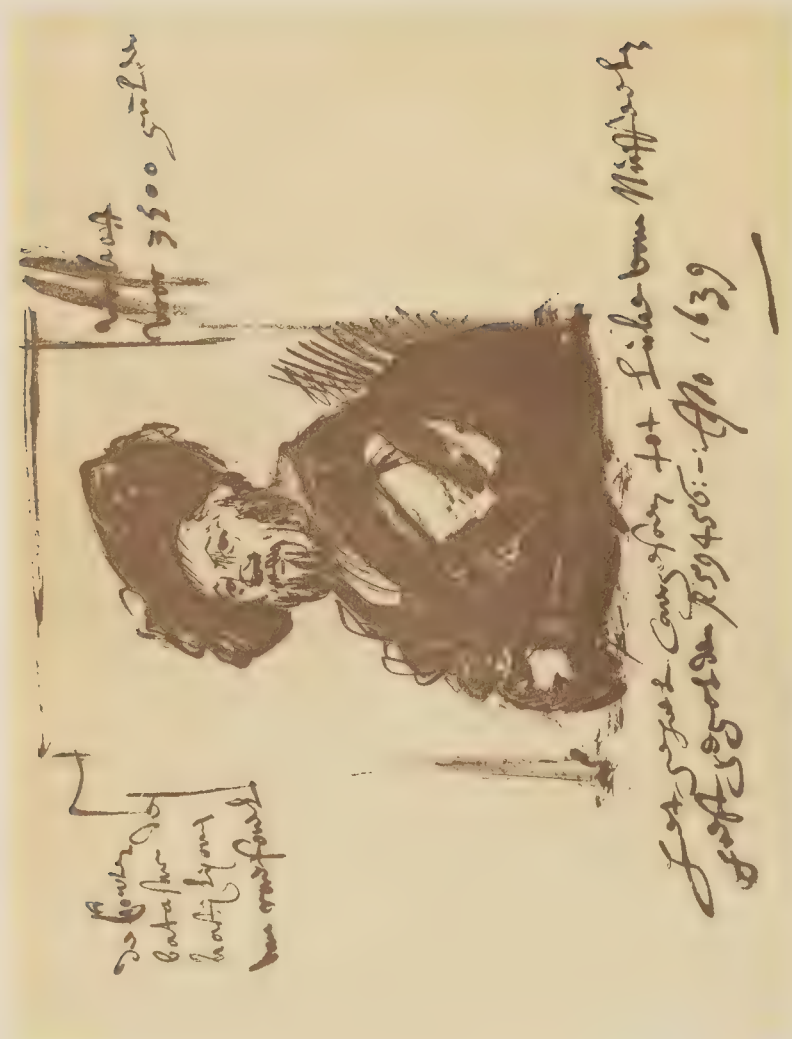 de Conte
batasar de
kastijlyone
van rafael
verkoft
voor 3500 gulden
het geheel caergesoen tot Luke van Nuffeelen
heeft gegolden f 59456:-: Ano 1639